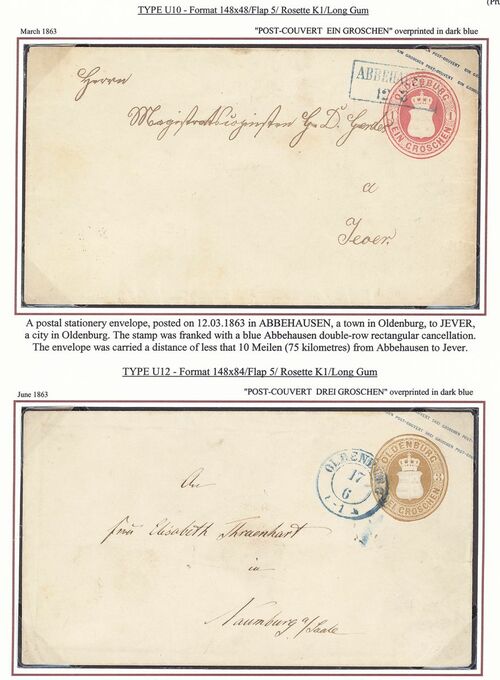 (Pr
TYPE U10 - Format 148x48/Flap 5/ Rosette K1/Long Gum
March 1863 "POST-COUVERT EIN GROSCHEN" overprinted in dark blue
EIN GROSCHEN POST-COUVERT
Herrn
ABBEHAU
12
OLDENBURG
1 1
EIN GROSCHEN
a
Jever.
A postal stationery envelope, posted on 12.03.1863 in ABBEHAUSEN, a town in Oldenburg, to JEVER,
a city in Oldenburg. The stamp was franked with a blue Abbehausen double-row rectangular cancellation.
The envelope was carried a distance of less that 10 Meilen (75 kilometres) from Abbehausen to Jever.
TYPE U12 - Format 148x84/Flap 5/ Rosette K1/Long Gum
June 1863 "POST-COUVERT DREI GROSCHEN" overprinted in dark blue
POST-COUVERT DREI GROSCHEN
OLDENBURG
17
6
OLDENBURG
3
EI GROSCHEN
An
Frau Elisabeth Thraenhart
in
Naumburg a/Saale